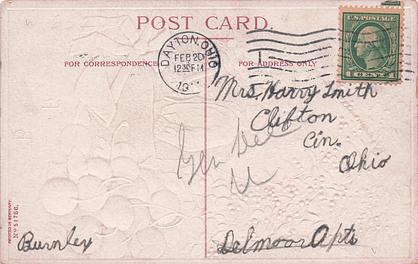 POST CARD.
FOR CORRESPONDENCE
FOR ADDRESS ONLY
DAYTON, OHIO
FEB 20
12 30 PM
U.S. POSTAGE
1 CENT 1
Mrs. Harry Smith
Clifton
Cin.
Ohio
Gen Del
Burnley
Delmoor Apts
PRINTED IN GERMANY.